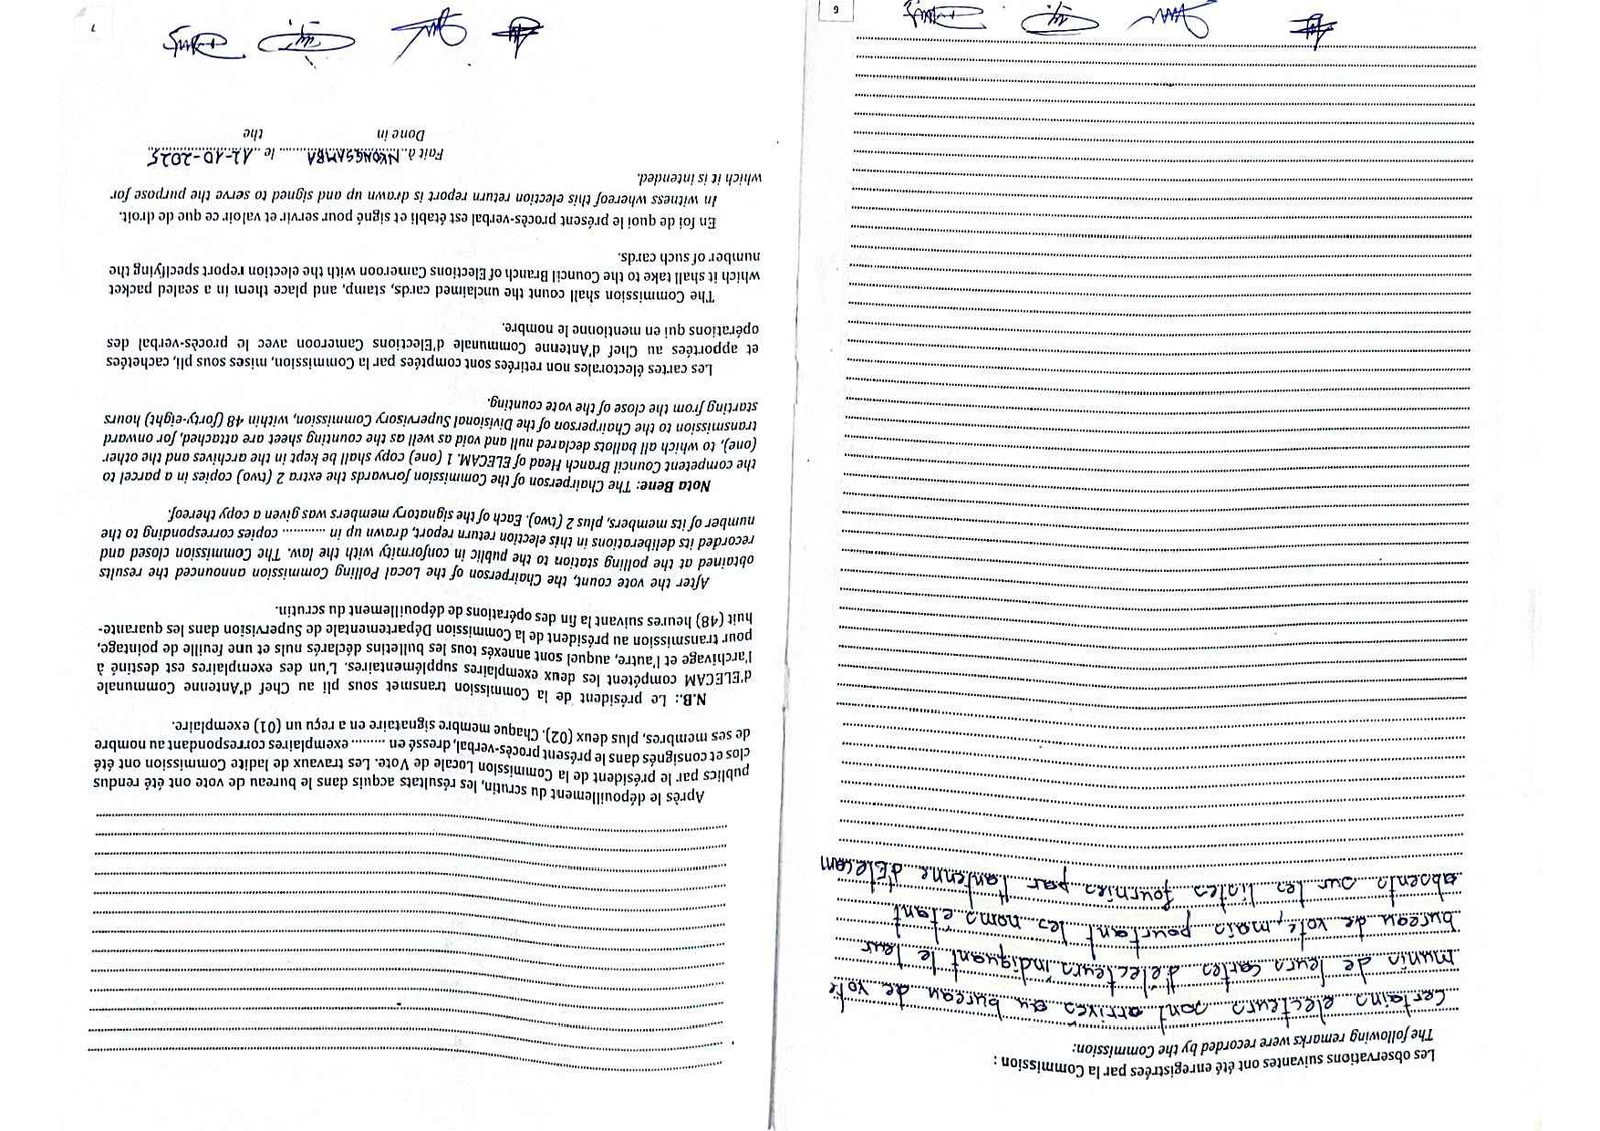 Les observations suivantes ont été enregistrées par la Commission :
The following remarks were recorded by the Commission:
Certains electeurs sont arrivés au bureau de vote
munin de leurs cartes d'électeurs indiquant le leur
bureau de vote, mais pourtant les noms étant
absents sur les listes fournies par l'antenne d'Elecam
6
Après le dépouillement du scrutin, les résultats acquis dans le bureau de vote ont été rendus
publics par le président de la Commission Locale de Vote. Les travaux de ladite Commission ont été
clos et consignés dans le présent procès-verbal, dressé en ......... exemplaires correspondant au nombre
de ses membres, plus deux (02). Chaque membre signataire en a reçu un (01) exemplaire.
N.B.: Le président de la Commission transmet sous pli au Chef d'Antenne Communale
d'ELECAM compétent les deux exemplaires supplémentaires. L'un des exemplaires est destiné à
l'archivage et l'autre, auquel sont annexés tous les bulletins déclarés nuls et une feuille de pointage,
pour transmission au président de la Commission Départementale de Supervision dans les quarante-
huit (48) heures suivant la fin des opérations de dépouillement du scrutin.
After the vote count, the Chairperson of the Local Polling Commission announced the results
obtained at the polling station to the public in conformity with the law. The Commission closed and
recorded its deliberations in this election return report, drawn up in ........... copies corresponding to the
number of its members, plus 2 (two). Each of the signatory members was given a copy thereof.
Nota Bene: The Chairperson of the Commission forwards the extra 2 (two) copies in a parcel to
the competent Council Branch Head of ELECAM. 1 (one) copy shall be kept in the archives and the other
(one), to which all ballots declared null and void as well as the counting sheet are attached, for onward
transmission to the Chairperson of the Divisional Supervisory Commission, within 48 (forty-eight) hours
starting from the close of the vote counting.
Les cartes électorales non retirées sont comptées par la Commission, mises sous pli, cachetées
et apportées au Chef d'Antenne Communale d'Elections Cameroon avec le procès-verbal des
opérations qui en mentionne le nombre.
The Commission shall count the unclaimed cards, stamp, and place them in a sealed packet
which it shall take to the Council Branch of Elections Cameroon with the election report specifying the
number of such cards.
En foi de quoi le présent procès-verbal est établi et signé pour servir et valoir ce que de droit.
In witness whereof this election return report is drawn up and signed to serve the purpose for
which it is intended.
Fait à NKONGSAMBA le 12-10-2025
Done in the
7